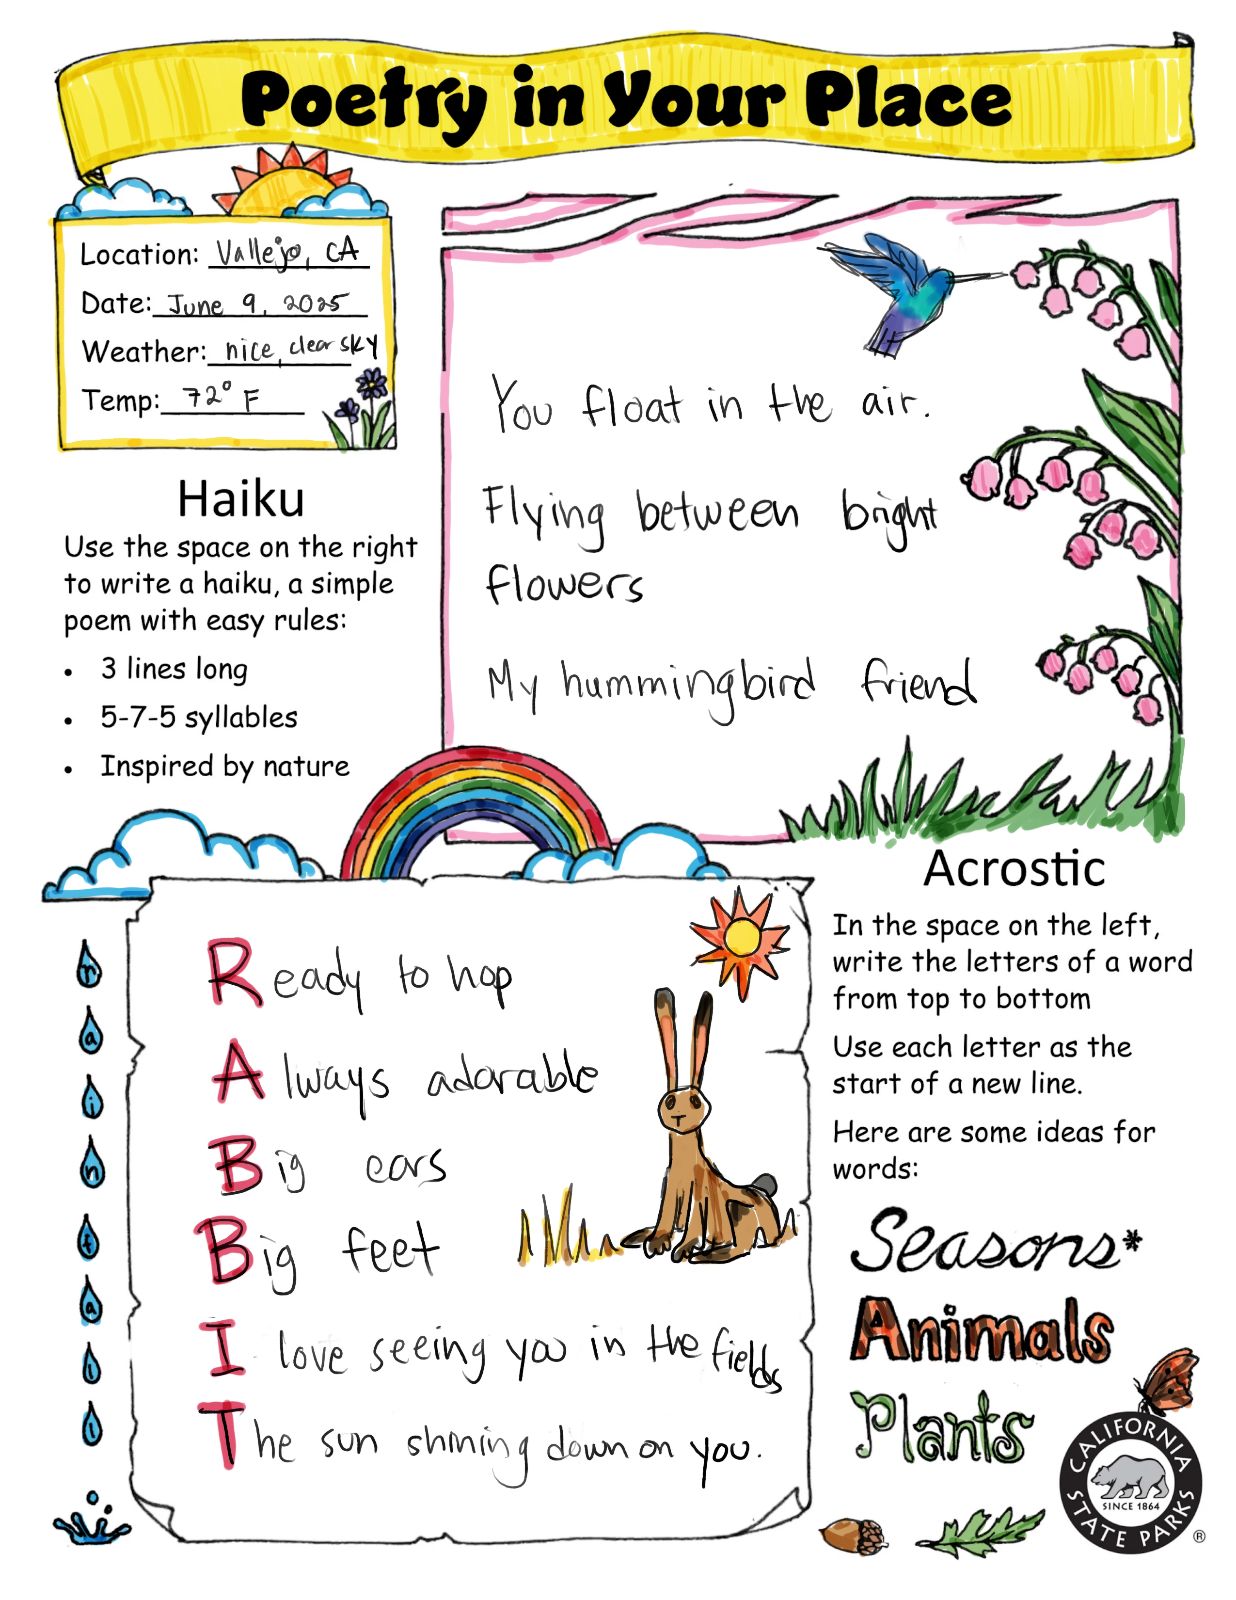 Poetry in Your Place
Location: Vallejo, CA
Date: June 9, 2025
Weather: nice, clear sky
Temp: 72° F
Haiku
Use the space on the right
to write a haiku, a simple
poem with easy rules:
• 3 lines long
• 5-7-5 syllables
• Inspired by nature
You float in the air.
Flying between bright
flowers
My hummingbird friend
r
a
i
n
f
a
l
l
Ready to hop
Always adorable
Big ears
Big feet
I love seeing you in the fields
The sun shining down on you.
Acrostic
In the space on the left,
write the letters of a word
from top to bottom
Use each letter as the
start of a new line.
Here are some ideas for
words:
Seasons*
Animals
Plants
CALIFORNIA
SINCE 1864
STATE PARKS
®